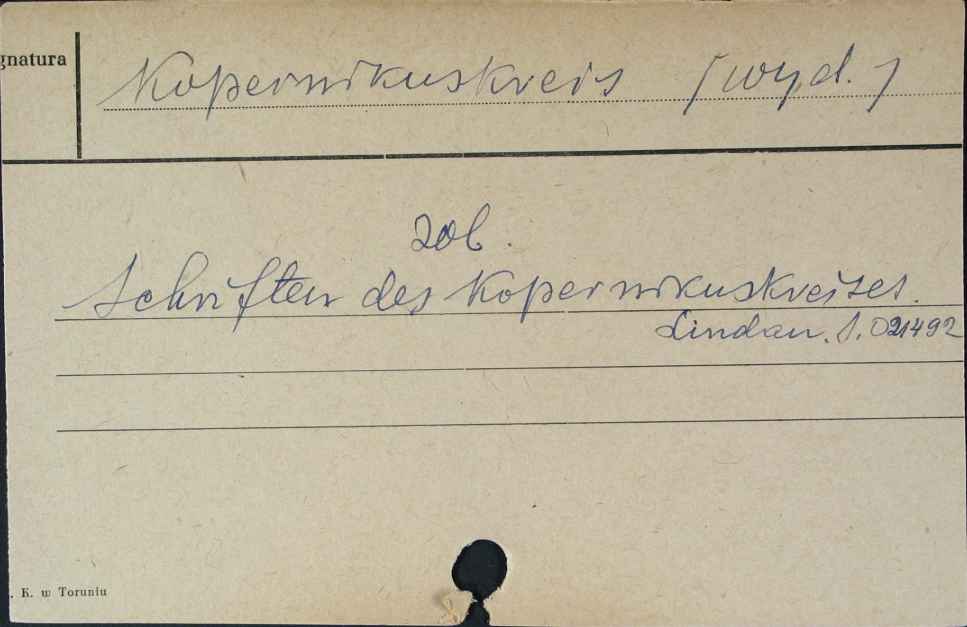 gnatura
Kopernikuskreis [wyd.]
zob.
Schriften des Kopernikuskreises.
Lindau. S. 021492
. K. w Toruniu